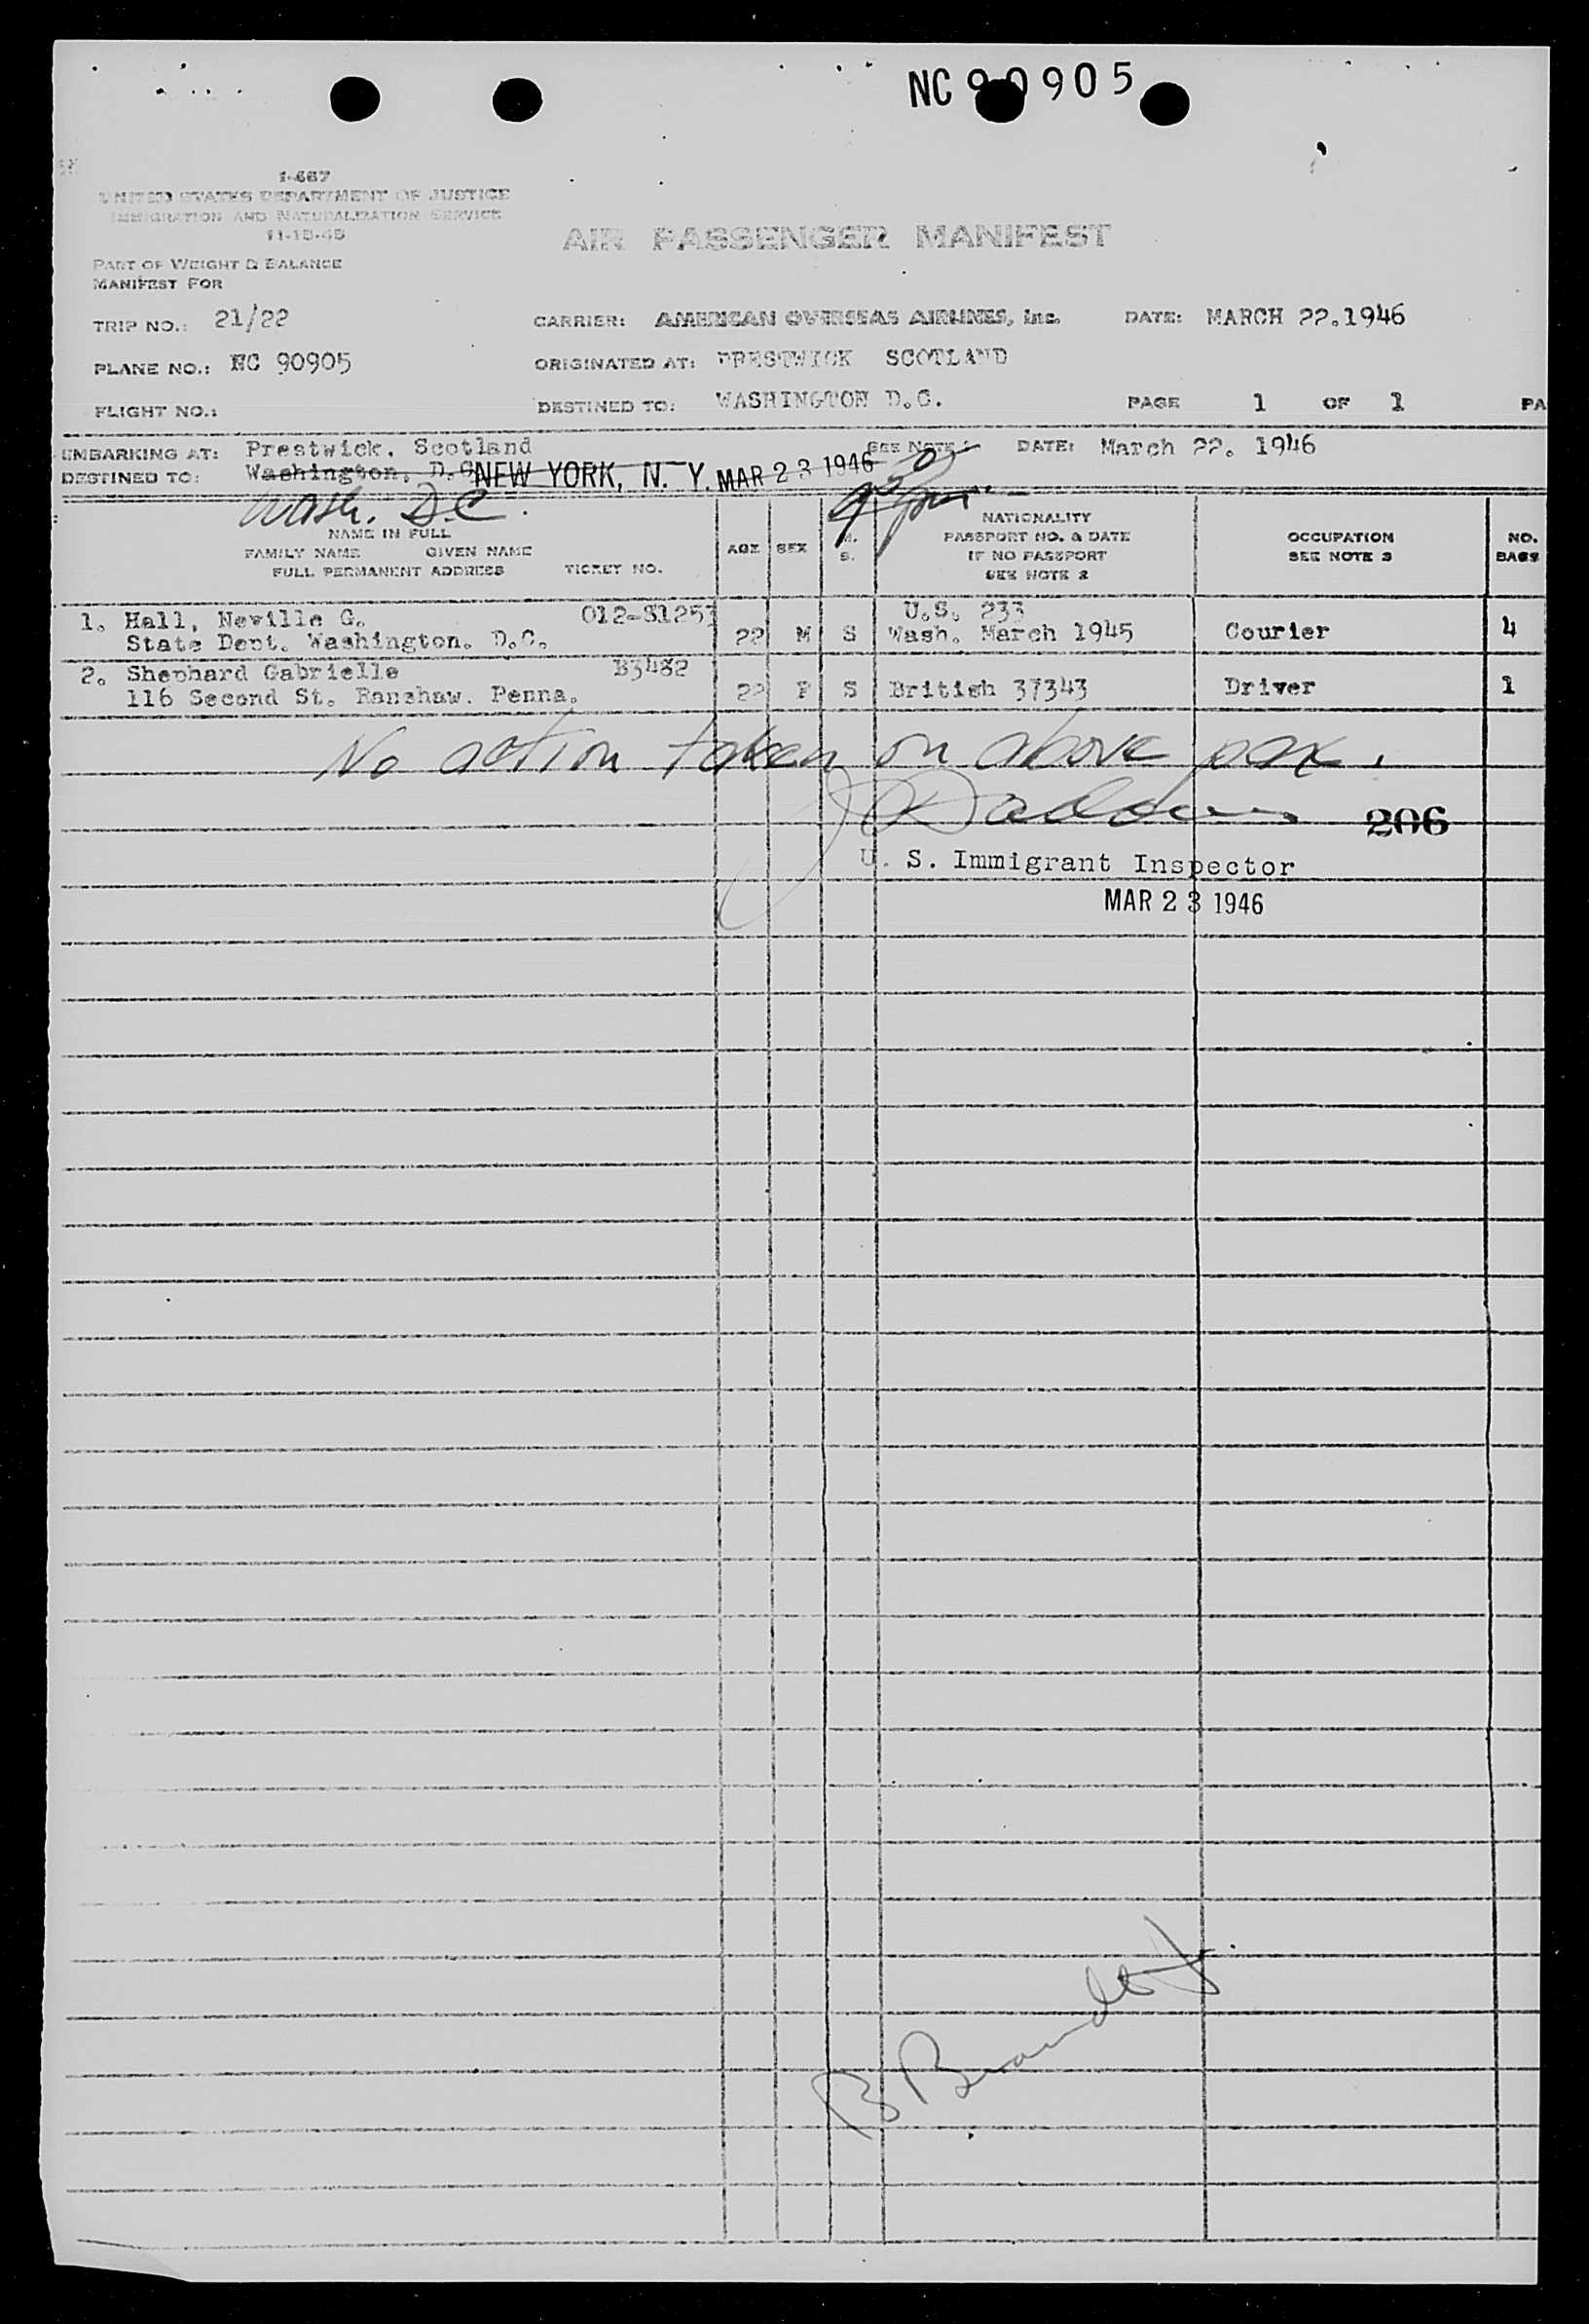 NC 90905
I-467
UNITED STATES DEPARTMENT OF JUSTICE
IMMIGRATION AND NATURALIZATION SERVICE
11-15-45
AIR PASSENGER MANIFEST
PART OF WEIGHT & BALANCE
MANIFEST FOR
TRIP NO.: 21/22 CARRIER: AMERICAN OVERSEAS AIRLINES, Inc. DATE: MARCH 22.1946
PLANE NO.: NC 90905 ORIGINATED AT: PRESTWICK SCOTLAND
FLIGHT NO.: DESTINED TO: WASHINGTON D.C. PAGE 1 OF 1 PA
EMBARKING AT: Prestwick, Scotland SEE NOTE DATE: March 22. 1946
DESTINED TO: Washington, D.C. NEW YORK, N. Y. MAR 23 1946
Wash. D.C.
NAME IN FULL
FAMILY NAME GIVEN NAME
FULL PERMANENT ADDRESS TICKET NO. AGE SEX M. S. NATIONALITY
PASSPORT NO. & DATE
IF NO PASSPORT
SEE NOTE 2
OCCUPATION
SEE NOTE 3
NO.
BAGS
1. Hall, Neville G. 012-S1253 U.S. 233
State Dept. Washington. D.C. 22 M S Wash. March 1945 Courier 4
2. Shephard Gabrielle B3482
116 Second St. Ranshaw. Penna. 22 F S British 37343 Driver 1
No action taken on above pax.
206
U. S. Immigrant Inspector
MAR 23 1946
B Brandt